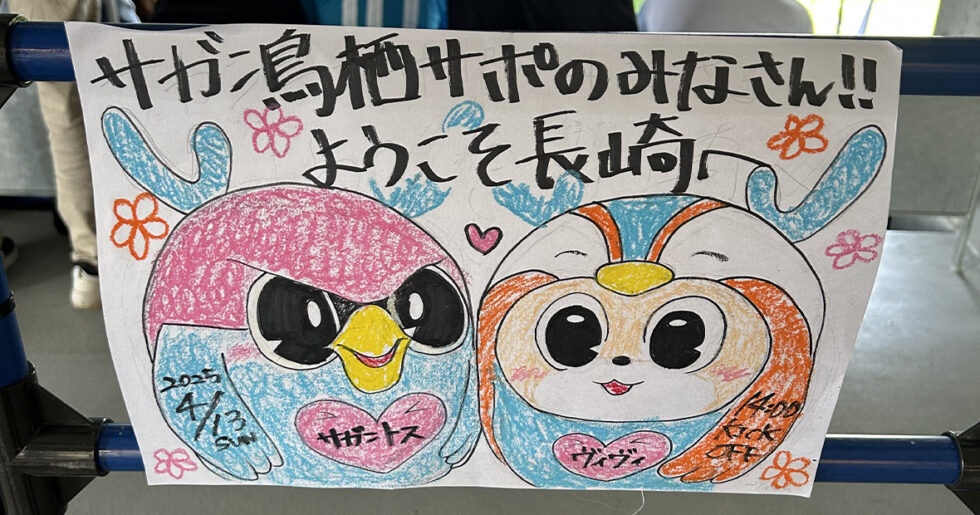 サガン鳥栖サポのみなさん!!
ようこそ長崎へ
2025
4/13
SUN
サガントス
ヴィヴィ
14:00
KICK
OFF